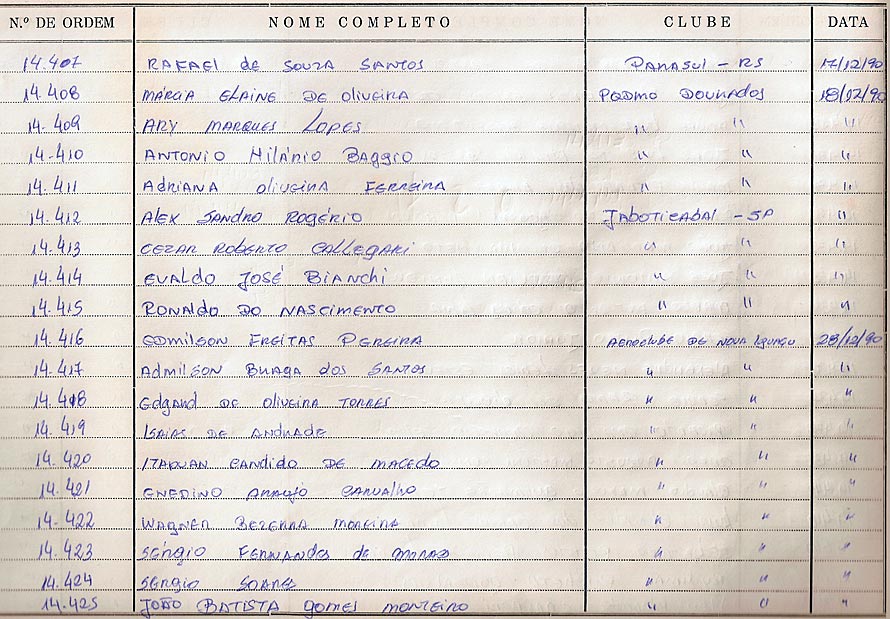 N.º DE ORDEM NOME COMPLETO CLUBE DATA
14.407 RAFAEL de SOUZA SANTOS PARASUL - RS 17/12/90
14.408 MÁRCIA ELAINE DE OLIVEIRA PQDMO DOURADOS 18/12/90
14.409 ARY MARQUES LOPES " " "
14.410 ANTONIO HILÁRIO BAGGIO " " "
14.411 ADRIANA OLIVEIRA FERREIRA " " "
14.412 ALEX SANDRO ROGÉRIO JABOTICABAL - SP "
14.413 CEZAR ROBERTO CALLEGARI " " "
14.414 EVALDO JOSÉ BIANCHI " " "
14.415 RONALDO DO NASCIMENTO " " "
14.416 EDMILSON FREITAS PEREIRA AEROCLUBE DE NOVA IGUAÇU 28/12/90
14.417 ADMILSON BRAGA dos SANTOS " " "
14.418 Edgard DE OLIVEIRA TORRES " " "
14.419 ISAIAS DE ANDRADE " " "
14.420 ITAPUAN CANDIDO DE MACEDO " " "
14.421 ENEDINO ARAUJO CARVALHO " " "
14.422 WAGNER BEZERRA MOREIRA " " "
14.423 SÉRGIO FERNANDES de " " "
14.424 SERGIO SOARES " " "
14.425 JOÃO BATISTA gomes MONTEIRO " " "